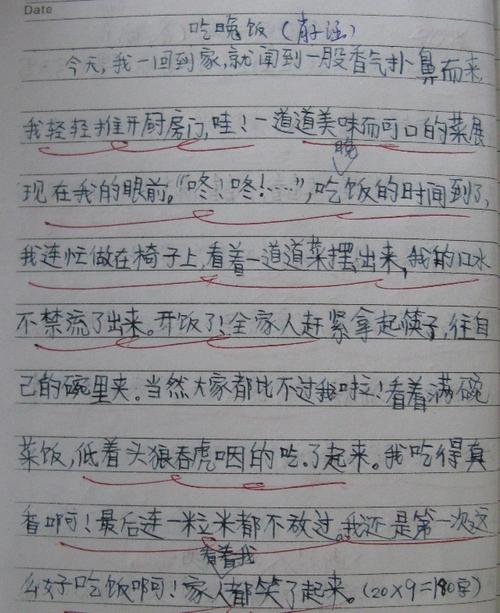 Date
吃晚饭(肖子涵)
今天,我一回到家,就闻到一股香气扑鼻而来
我轻轻推开厨房门,哇!一道道美味而可口的菜展
晚
现在我的眼前。“咚!咚!……”,吃饭的时间到了,
我连忙做在椅子上,看着一道道菜摆出来,我的口水
不禁流了出来。开饭了!全家人赶紧拿起筷子,往自
己的碗里夹。当然大家都比不过我啦!看着满碗
菜饭,低着头狼吞虎咽的吃了起来。我吃得真
香啊!最后连一粒米都不放过。我还是第一次这
看着我
么好吃饭啊!家人都笑了起来。(20×9=180字)